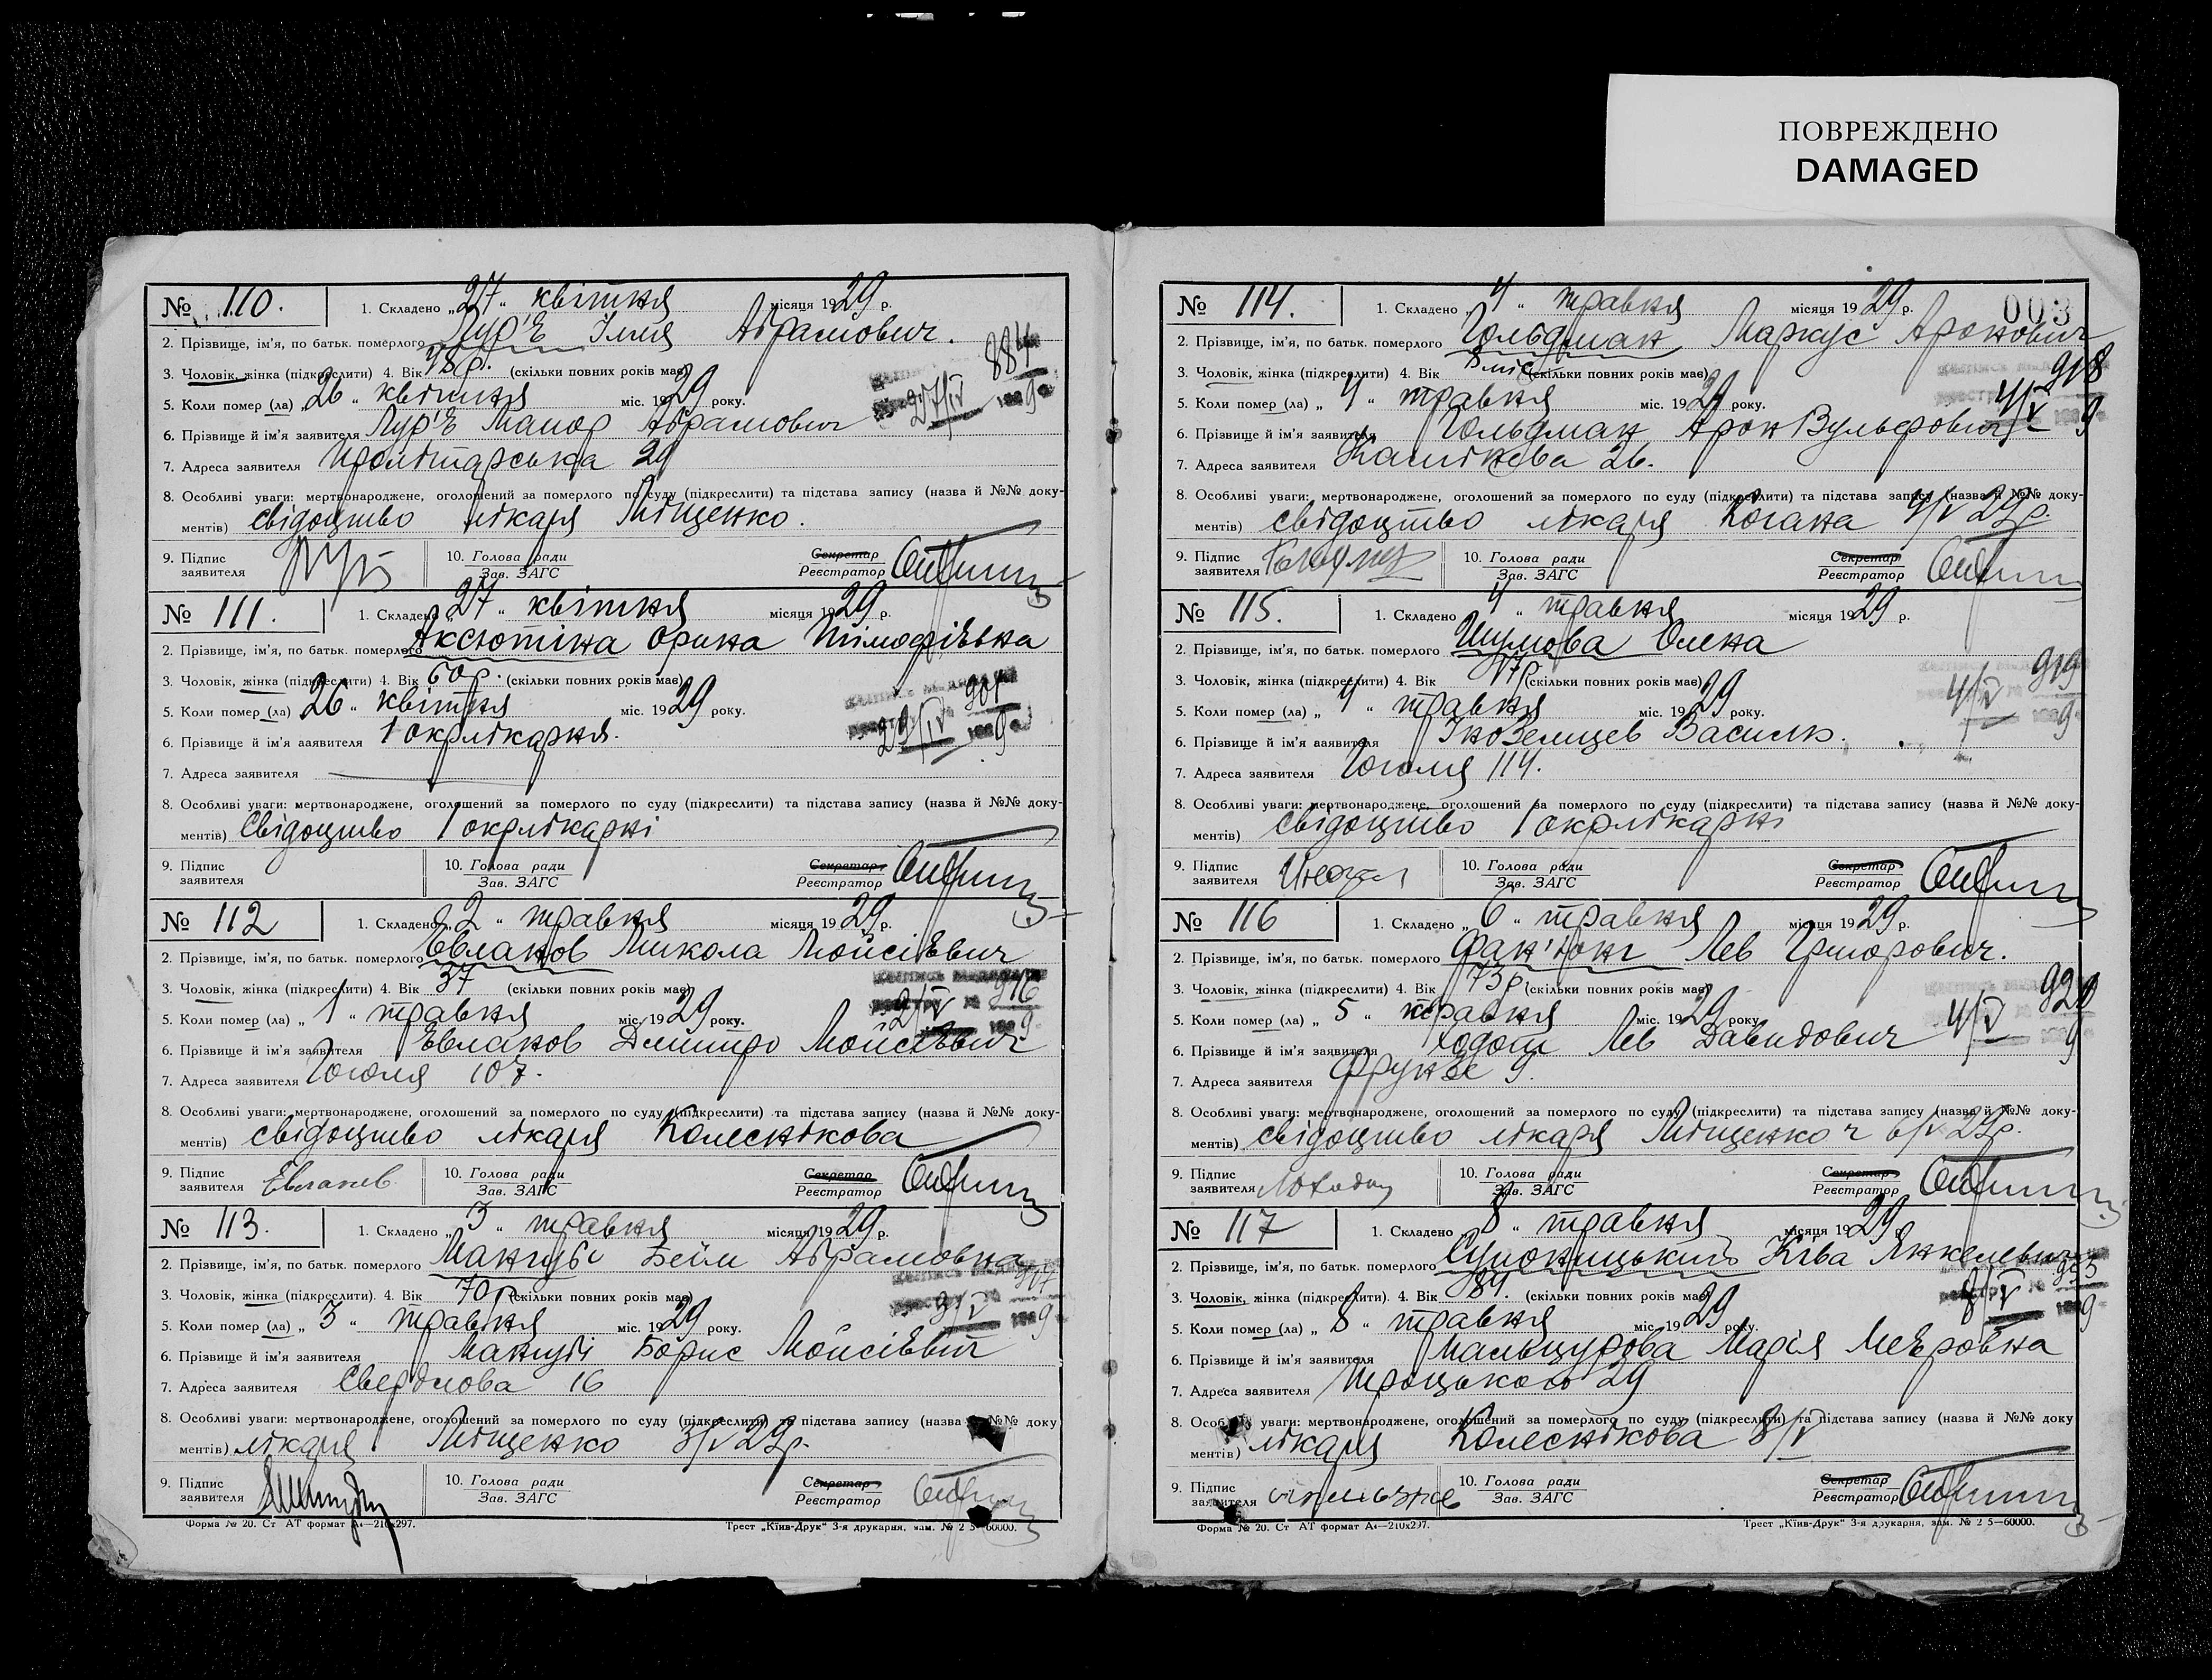 ПОВРЕЖДЕНО
DAMAGED
№ 110.
1. Складено „27“ квітня місяця 1929 р.
2. Прізвище, ім'я, по батьк. померлого Лур'Є Ілля Абрамович.
3. Чоловік, жінка (підкреслити) 4. Вік 48 р. (скільки повних років має)
884
5. Коли помер (ла) „26“ квітня міс. 1929 року.
27/IV 9
6. Прізвище й ім'я заявителя Лур'Є Манор Абрамович
7. Адреса заявителя Пролітарська 29
8. Особливі уваги: мертвонароджене, оголошений за померлого по суду (підкреслити) та підстава запису (назва й №№ доку-
ментів) свідоцтво лікаря Міщенко.
9. Підпис заявителя
10. Голова ради
Зав. ЗАГС
Секретар
Реєстратор
№ 111.
1. Складено „27“ квітня місяця 1929 р.
2. Прізвище, ім'я, по батьк. померлого Аксютіна Орина Тімофіївна
3. Чоловік, жінка (підкреслити) 4. Вік 60 р. (скільки повних років має)
904
5. Коли помер (ла) 26 „ квітня міс. 1929 року.
29/IV 9
6. Прізвище й ім'я заявителя 1 окрлікарня.
7. Адреса заявителя
8. Особливі уваги: мертвонароджене, оголошений за померлого по суду (підкреслити) та підстава запису (назва й №№ доку-
ментів) Свідоцтво 1 окрлікарні
9. Підпис заявителя
10. Голова ради
Зав. ЗАГС
Секретар
Реєстратор
№ 112
1. Складено „2“ травня місяця 1929 р.
2. Прізвище, ім'я, по батьк. померлого Євланов Микола Мойсієвич
3. Чоловік, жінка (підкреслити) 4. Вік 37 (скільки повних років має)
916
5. Коли помер (ла) „1“ травня міс. 1929 року.
2/V 9
6. Прізвище й ім'я заявителя Євланов Дмитро Мойсієвич
7. Адреса заявителя Гоголя 107.
8. Особливі уваги: мертвонароджене, оголошений за померлого по суду (підкреслити) та підстава запису (назва й №№ доку-
ментів) свідоцтво лікаря Колеснікова
9. Підпис заявителя Евланов
10. Голова ради
Зав. ЗАГС
Секретар
Реєстратор
№ 113.
1. Складено „3“ травня місяця 1929 р.
2. Прізвище, ім'я, по батьк. померлого Бейля Абрамовна
3. Чоловік, жінка (підкреслити). 4. Вік 70 р. (скільки повних років має)
917
5. Коли помер (ла) „3“ травня міс. 1929 року.
3/V 9
6. Прізвище й ім'я заявителя Борис Мойсієвич
7. Адреса заявителя Свердлова 16
8. Особливі уваги: мертвонароджене, оголошений за померлого по суду (підкреслити) та підстава запису (назва №№ доку
ментів) лікаря Міщенко 3/V 29р.
9. Підпис заявителя
10. Голова ради
Зав. ЗАГС
Секретар
Реєстратор
Форма № 20. Ст АТ формат А4—210x297.
Трест „Київ-Друк“ 3-я друкарня, зам. № 2 5—60000.
003
№ 114.
1. Складено „4“ травня місяця 1929 р.
2. Прізвище, ім'я, по батьк. померлого Гольдман Маркус Аронович
3. Чоловік, жінка (підкреслити) 4. Вік 8 міс (скільки повних років має)
918
5. Коли помер (ла) „4“ травня міс. 1929 року.
4/V 9
6. Прізвище й ім'я заявителя Гольдман Арон Вульфович
7. Адреса заявителя 26.
8. Особливі уваги: мертвонароджене, оголошений за померлого по суду (підкреслити) та підстава запису (назва й №№ доку-
ментів) свідоцтво лікаря Когана 4/V 29р.
9. Підпис заявителя
10. Голова ради
Зав. ЗАГС
Секретар
Реєстратор
№ 115.
1. Складено „4“ травня місяця 1929 р.
2. Прізвище, ім'я, по батьк. померлого Шумова Олена
3. Чоловік, жінка (підкреслити) 4. Вік 47р (скільки повних років має)
919
5. Коли помер (ла) „4“ травня міс. 1929 року.
4/V 9
6. Прізвище й ім'я заявителя Іноземцев Василь.
7. Адреса заявителя Гоголя 114.
8. Особливі уваги: мертвонароджене, оголошений за померлого по суду (підкреслити) та підстава запису (назва й №№ доку-
ментів) свідоцтво 1 окрлікарні
9. Підпис заявителя
10. Голова ради
Зав. ЗАГС
Секретар
Реєстратор
№ 116
1. Складено „6“ травня місяця 1929 р.
2. Прізвище, ім'я, по батьк. померлого Лев Григорович.
3. Чоловік, жінка (підкреслити) 4. Вік 73р (скільки повних років має)
920
5. Коли помер (ла) „5“ травня міс. 1929 року
4/V 9
6. Прізвище й ім'я заявителя Ходош Лев Давидович
7. Адреса заявителя Фрунзе 9.
8. Особливі уваги: мертвонароджене, оголошений за померлого по суду (підкреслити) та підстава запису (назва й №№ доку-
ментів) свідоцтво лікаря Міщенко 6/V 29р.
9. Підпис заявителя
10. Голова ради
Зав. ЗАГС
Секретар
Реєстратор
№ 117
1. Складено „8“ травня місяця 1929 р.
2. Прізвище, ім'я, по батьк. померлого Ківа Янкелевич
3. Чоловік, жінка (підкреслити). 4. Вік 84. (скільки повних років має)
5. Коли помер (ла) „8“ травня міс. 1929 року.
8/V 9
6. Прізвище й ім'я заявителя Мальцурова Марія Меєровна
7. Адреса заявителя Троцького 29
8. Особ уваги: мертвонароджене, оголошений за померлого по суду (підкреслити) та підстава запису (назва й №№ доку
ментів) лікаря Колеснікова 8/V
9. Підпис заявителя
10. Голова ради
Зав. ЗАГС
Секретар
Реєстратор
Форма № 20. Ст АТ формат А4—210x297.
Трест „Київ-Друк“ 3-я друкарня, зам. № 2 5—60000.